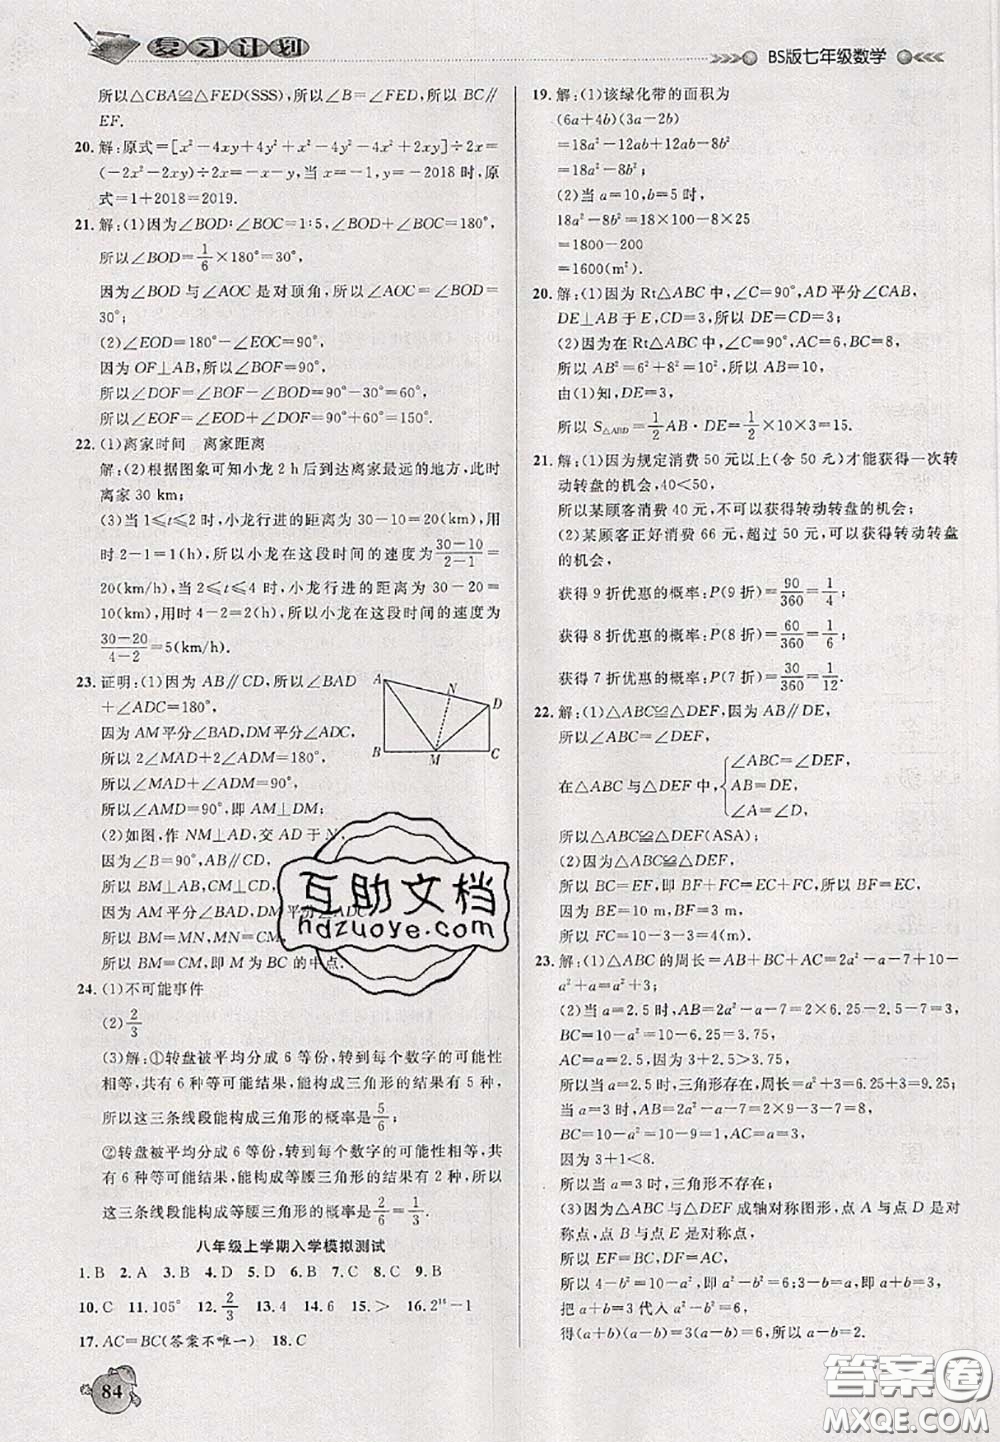 复习计划
BS版七年级数学
所以△CBA≌△FED(SSS),所以∠B=∠FED,所以 BC∥
EF.
20. 解:原式=[x²-4xy+4y²+x²-4y²-4x²+2xy]÷2x=
(-2x²-2xy)÷2x=-x-y,当 x=-1,y=-2018 时,原
式=1+2018=2019.
21. 解:(1)因为∠BOD:∠BOC=1:5,∠BOD+∠BOC=180°,
所以∠BOD=1/6×180°=30°,
因为∠BOD 与∠AOC 是对顶角,所以∠AOC=∠BOD=
30°;
(2)∠EOD=180°-∠EOC=90°,
因为 OF⊥AB,所以∠BOF=90°,
所以∠DOF=∠BOF-∠BOD=90°-30°=60°,
所以∠EOF=∠EOD+∠DOF=90°+60°=150°.
22. (1)离家时间 离家距离
解:(2)根据图象可知小龙 2 h 后到达离家最远的地方,此时
离家 30 km;
(3)当 1≤t≤2 时,小龙行进的距离为 30-10=20(km),用
时 2-1=1(h),所以小龙在这段时间的速度为 (30-10)/(2-1)=
20(km/h),当 2≤t≤4 时,小龙行进的距离为 30-20=
10(km),用时 4-2=2(h),所以小龙在这段时间的速度为
(30-20)/(4-2)=5(km/h).
23. 证明:(1)因为 AB∥CD,所以∠BAD
+∠ADC=180°,
因为 AM 平分∠BAD,DM 平分∠ADC,
所以 2∠MAD+2∠ADM=180°,
所以∠MAD+∠ADM=90°,
所以∠AMD=90°,即 AM⊥DM;
(2)如图,作 NM⊥AD,交 AD 于 N,
因为∠B=90°,AB∥CD,
所以 BM⊥AB,CM⊥CD,
因为 AM 平分∠BAD,DM 平分∠ADC,
所以 BM=MN,MN=CM,
所以 BM=CM,即 M 为 BC 的中点.
A
N
D
B
M
C
24. (1)不可能事件
(2)2/3
(3)解:①转盘被平均分成 6 等份,转到每个数字的可能性
相等,共有 6 种等可能结果,能构成三角形的结果有 5 种,
所以这三条线段能构成三角形的概率是5/6;
②转盘被平均分成 6 等份,转到每个数字的可能性相等,共
有 6 种等可能结果,能构成等腰三角形的结果有 2 种,所以
这三条线段能构成等腰三角形的概率是2/6=1/3.
八年级上学期入学模拟测试
1. B 2. A 3. B 4. D 5. D 6. B 7. C 8. C 9. C
10. C 11. 105° 12. 2/3 13. 4 14. 55° 15. > 16. 2¹⁶-1
17. AC=BC(答案不唯一) 18. C
84
19. 解:(1)该绿化带的面积为
(6a+4b)(3a-2b)
=18a²-12ab+12ab-8b²
=18a²-8b²;
(2)当 a=10,b=5 时,
18a²-8b²=18×100-8×25
=1800-200
=1600(m²).
20. 解:(1)因为 Rt△ABC 中,∠C=90°,AD 平分∠CAB,
DE⊥AB 于 E,CD=3,所以 DE=CD=3;
(2)因为在 Rt△ABC 中,∠C=90°,AC=6,BC=8,
所以 AB²=6²+8²=10²,所以 AB=10,
由(1)知,DE=3,
所以 S△ABD=1/2AB·DE=1/2×10×3=15.
21. 解:(1)因为规定消费 50 元以上(含 50 元)才能获得一次转
动转盘的机会,40<50,
所以某顾客消费 40 元,不可以获得转动转盘的机会;
(2)某顾客正好消费 66 元,超过 50 元,可以获得转动转盘
的机会,
获得 9 折优惠的概率:P(9 折)=90/360=1/4;
获得 8 折优惠的概率:P(8 折)=60/360=1/6;
获得 7 折优惠的概率:P(7 折)=30/360=1/12.
22. 解:(1)△ABC≌△DEF,因为 AB∥DE,
所以∠ABC=∠DEF,
在△ABC 与△DEF 中,{∠ABC=∠DEF,
AB=DE,
∠A=∠D,
所以△ABC≌△DEF(ASA);
(2)因为△ABC≌△DEF,
所以 BC=EF,即 BF+FC=EC+FC,所以 BF=EC,
因为 BE=10 m,BF=3 m,
所以 FC=10-3-3=4(m).
23. 解:(1)△ABC 的周长=AB+BC+AC=2a²-a-7+10-
a²+a=a²+3;
(2)当 a=2.5 时,AB=2a²-a-7=2×6.25-2.5-7=3,
BC=10-a²=10-6.25=3.75,
AC=a=2.5,因为 3+2.5>3.75,
所以当 a=2.5 时,三角形存在,周长=a²+3=6.25+3=9.25;
当 a=3 时,AB=2a²-a-7=2×9-3-7=8,
BC=10-a²=10-9=1,AC=a=3,
因为 3+1<8.
所以当 a=3 时,三角形不存在;
(3)因为△ABC 与△DEF 成轴对称图形,点 A 与点 D 是对
称点,点 B 与点 E 是对称点,
所以 EF=BC,DF=AC,
所以 4-b²=10-a²,即 a²-b²=6;3-b=a,即 a+b=3,
把 a+b=3 代入 a²-b²=6,
得(a+b)(a-b)=3(a-b)=6,所以 a-b=2.
互助文档
hdzuoye.com
答案圈
MXQE.COM